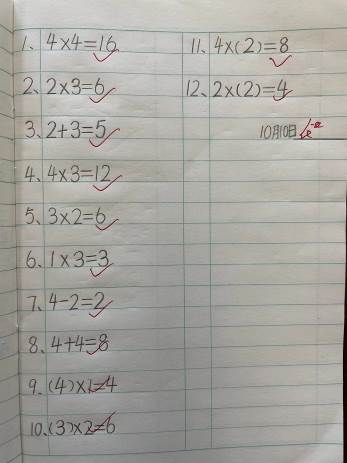 1、4×4=16
2、2×3=6
3、2+3=5
4、4×3=12
5、3×2=6
6、1×3=3
7、4-2=2
8、4+4=8
9、(4)×1=4
10、(3)×2=6
11、4×(2)=8
12、2×(2)=4
10月10日